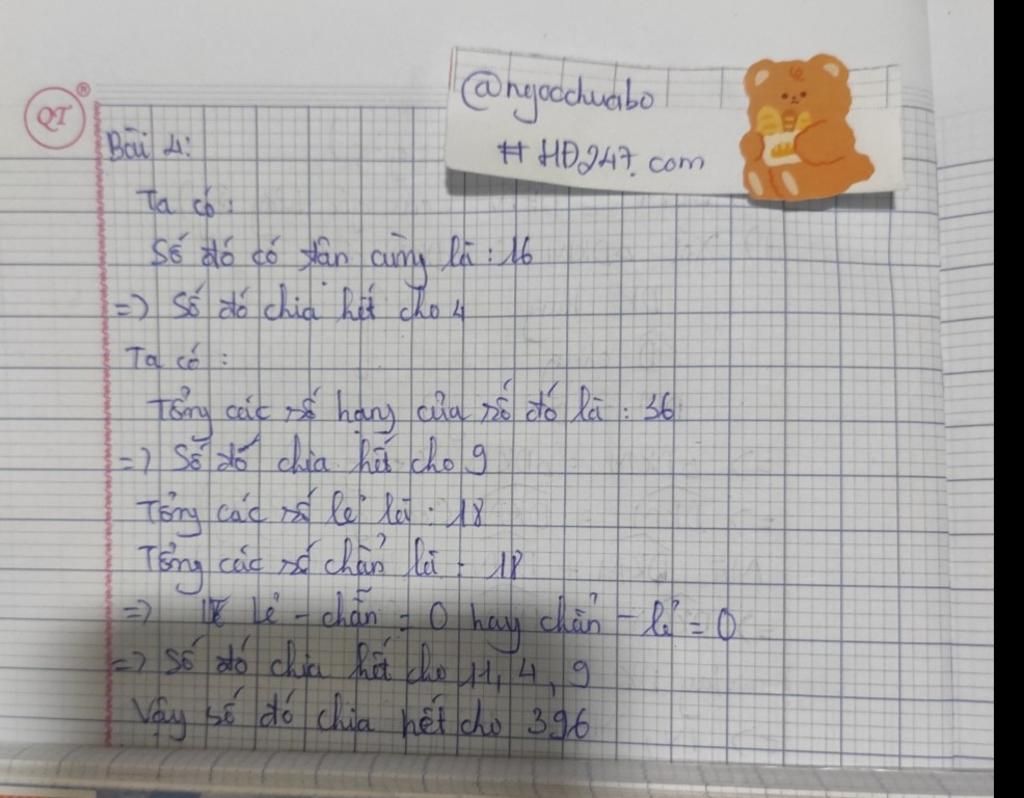 @ngocchuabo
# HĐ247.com
QT®
Bài 4:
Ta có:
Số đó có tận cùng là : 16
=) Số đó chia hết cho 4
Ta có :
Tổng các số hạng của số đó là : 36
=) Số đó chia hết cho 9
Tổng các số lẻ là : 18
Tổng các số chẩn là : 18
=) Lẻ - chẵn = 0 hay chẩn - lẻ = 0
=) Số đó chia hết cho 11, 4, 9
Vậy số đó chia hết cho 396